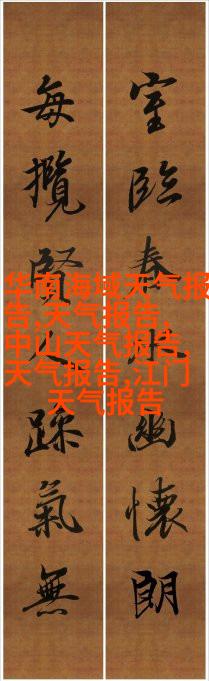 室臨春幽懷朗
每攬賢人躁氣無
华南海域天气报
告,天气报告,
中山天气报告,
天气报告,江门
天气报告